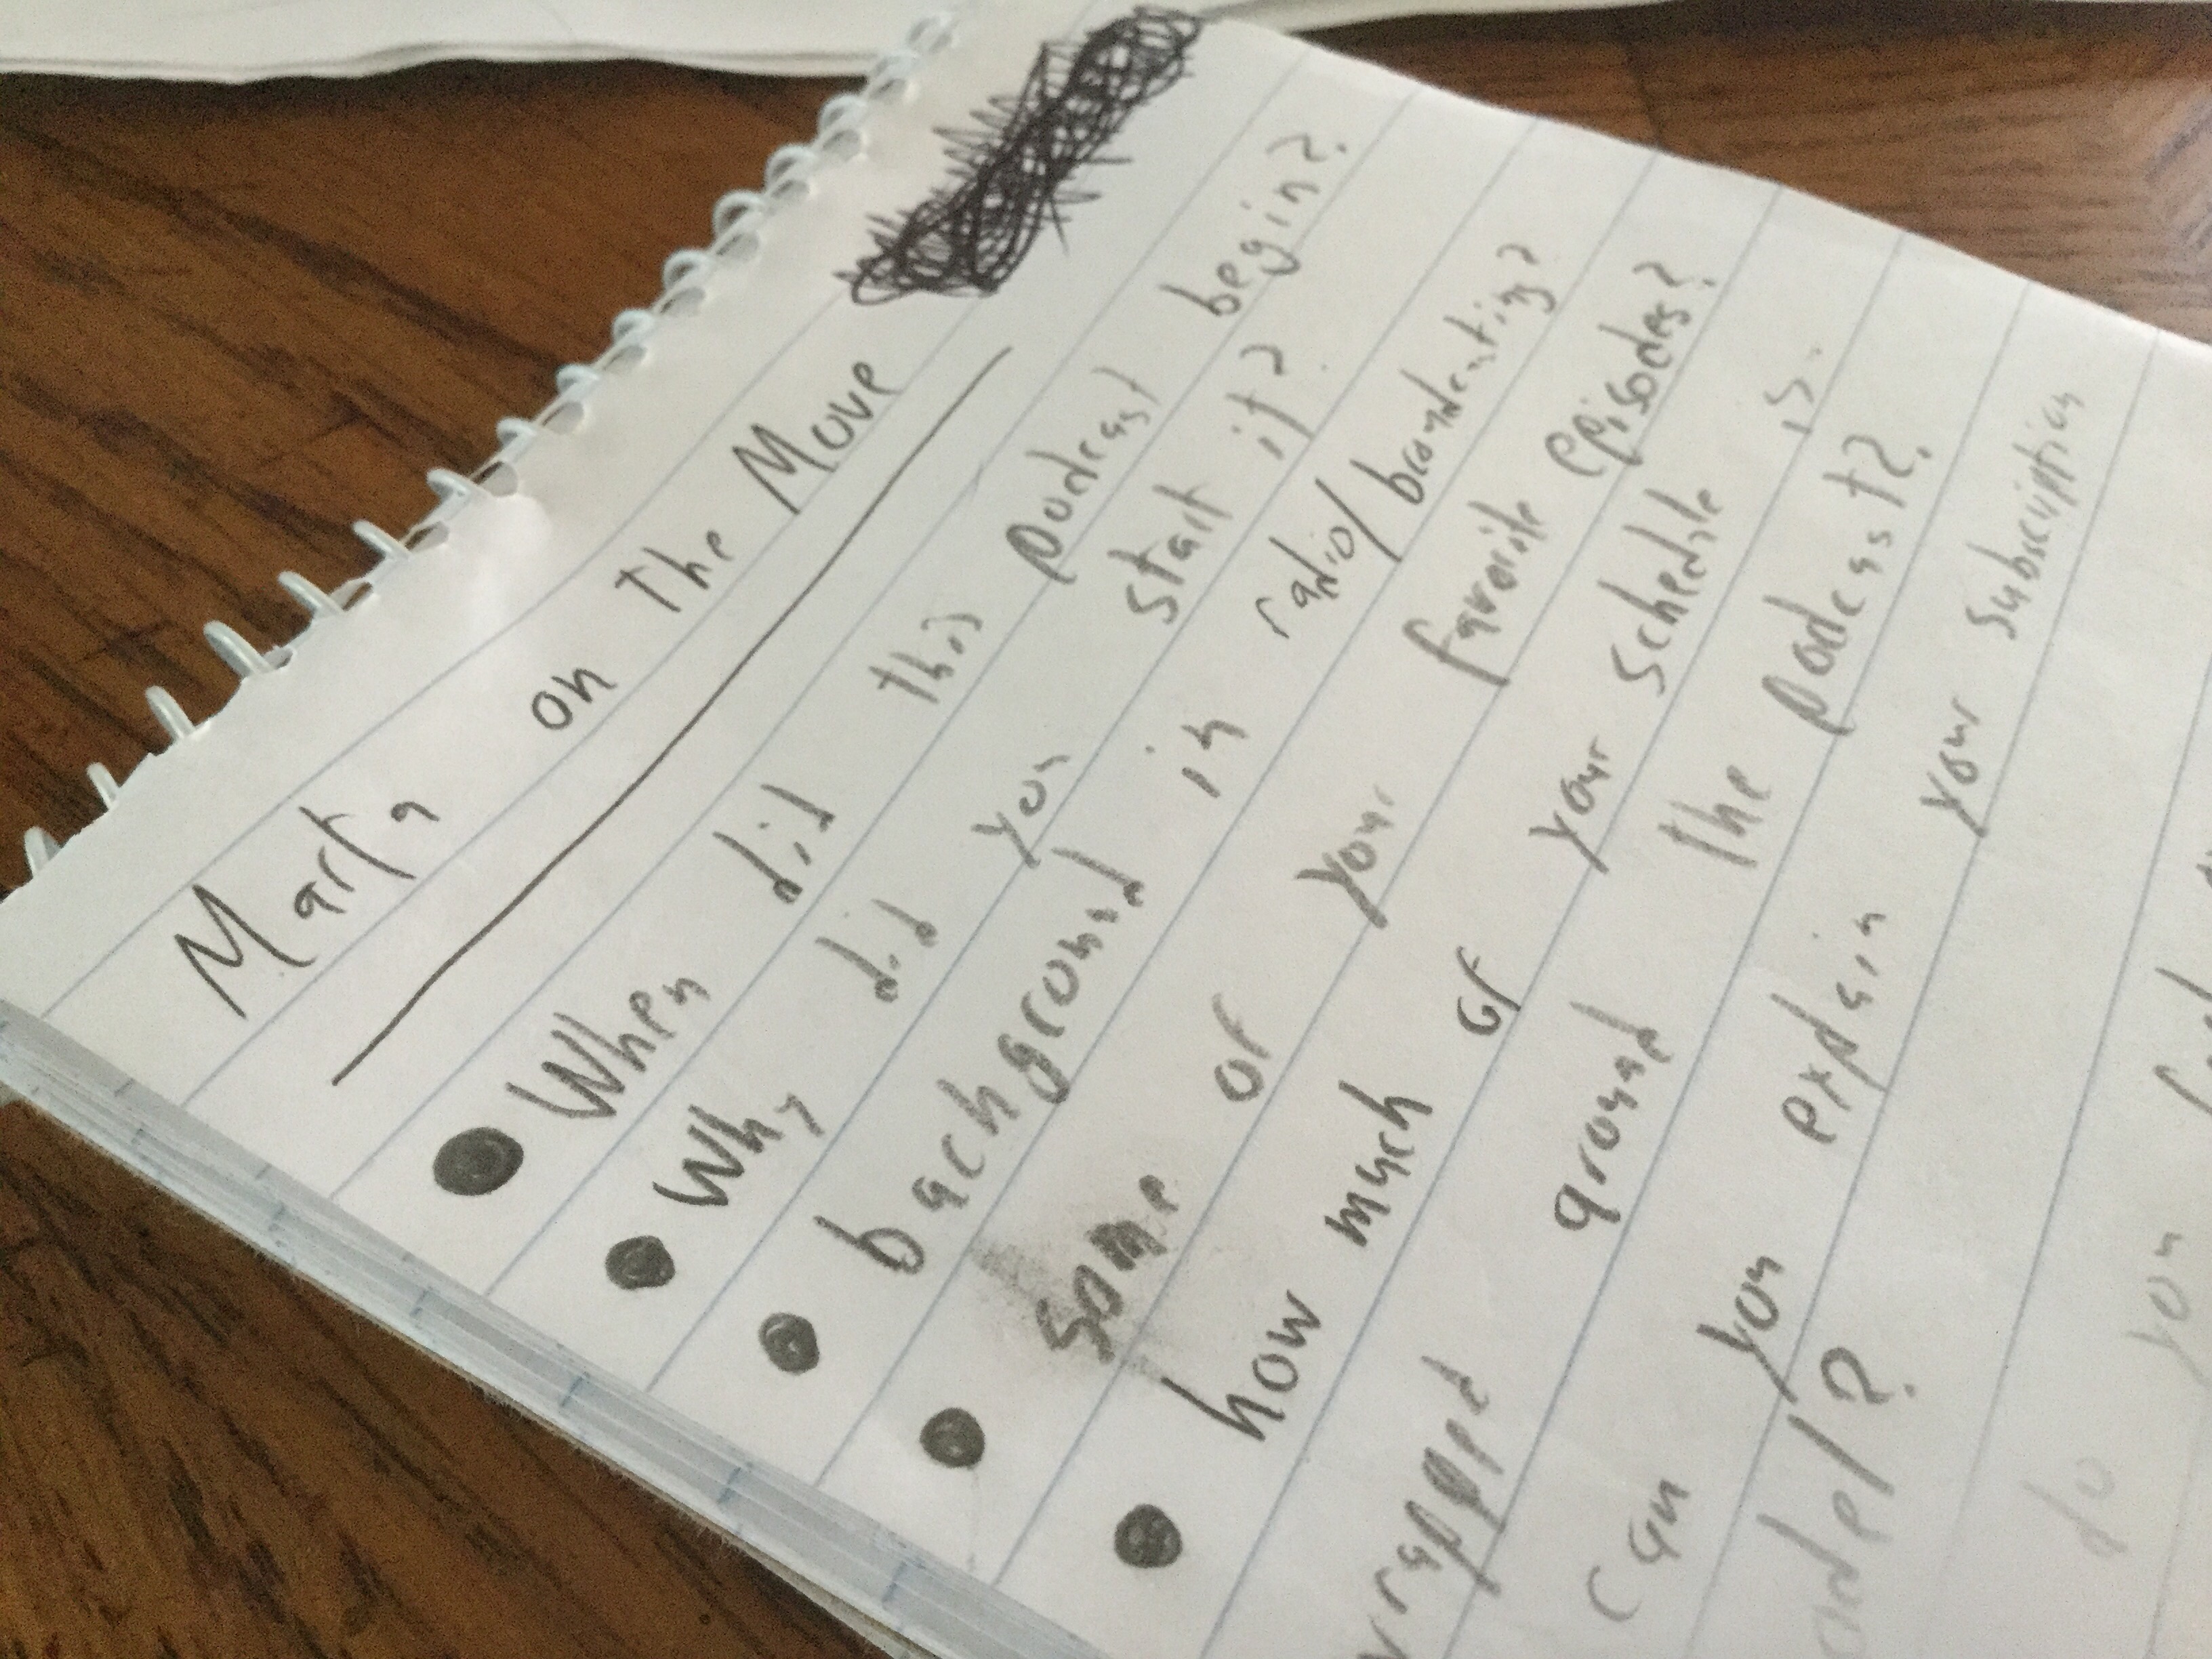 Marta on The Move
When did this podcast begin?
Why did you start it?
background in radio/broadcasting?
some of your favorite episodes?
how much of your schedule is
wrapped around the podcast?
can you explain your subscription
model?
do you